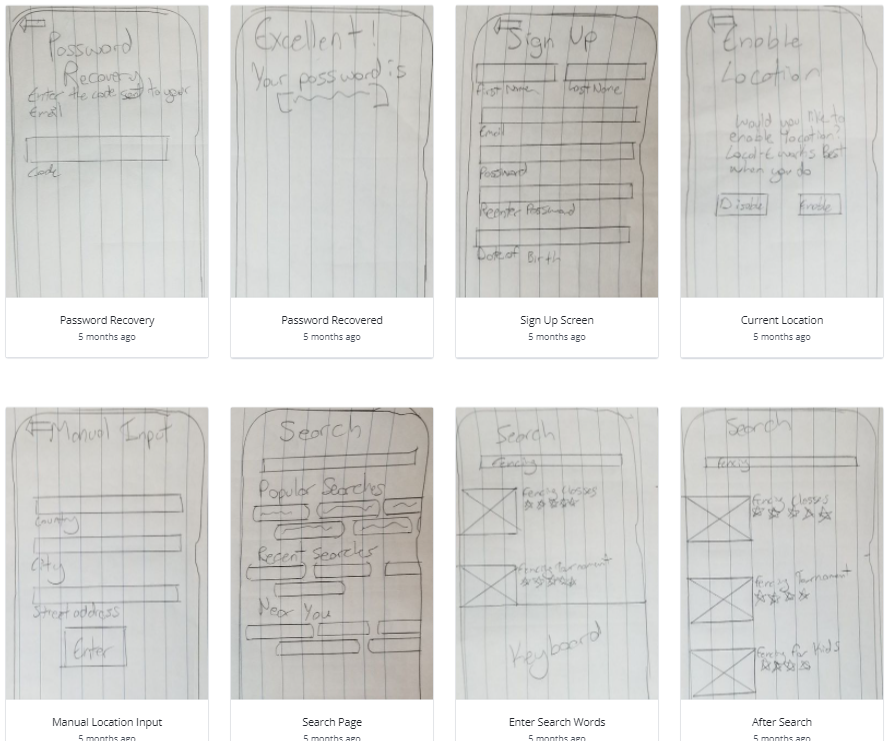 Password
Recovery
Enter the code sent to your
Email
Code
Password Recovery
5 months ago
Excellent!
Your password is
Password Recovered
5 months ago
Sign Up
First Name
Last Name
Email
Password
Reenter Password
Date of Birth
Sign Up Screen
5 months ago
Enable
Location
Would you like to
enable location?
Local-E works Best
when you do
Disable
Enable
Current Location
5 months ago
Manual Input
Country
City
Street address
Enter
Manual Location Input
5 months ago
Search
Popular Searches
Recent Searches
Near You
Search Page
5 months ago
Search
Fencing
Fencing Classes
Fencing Tournament
Keyboard
Enter Search Words
5 months ago
Search
Fencing
Fencing Classes
Fencing Tournament
Fencing for Kids
After Search
5 months ago